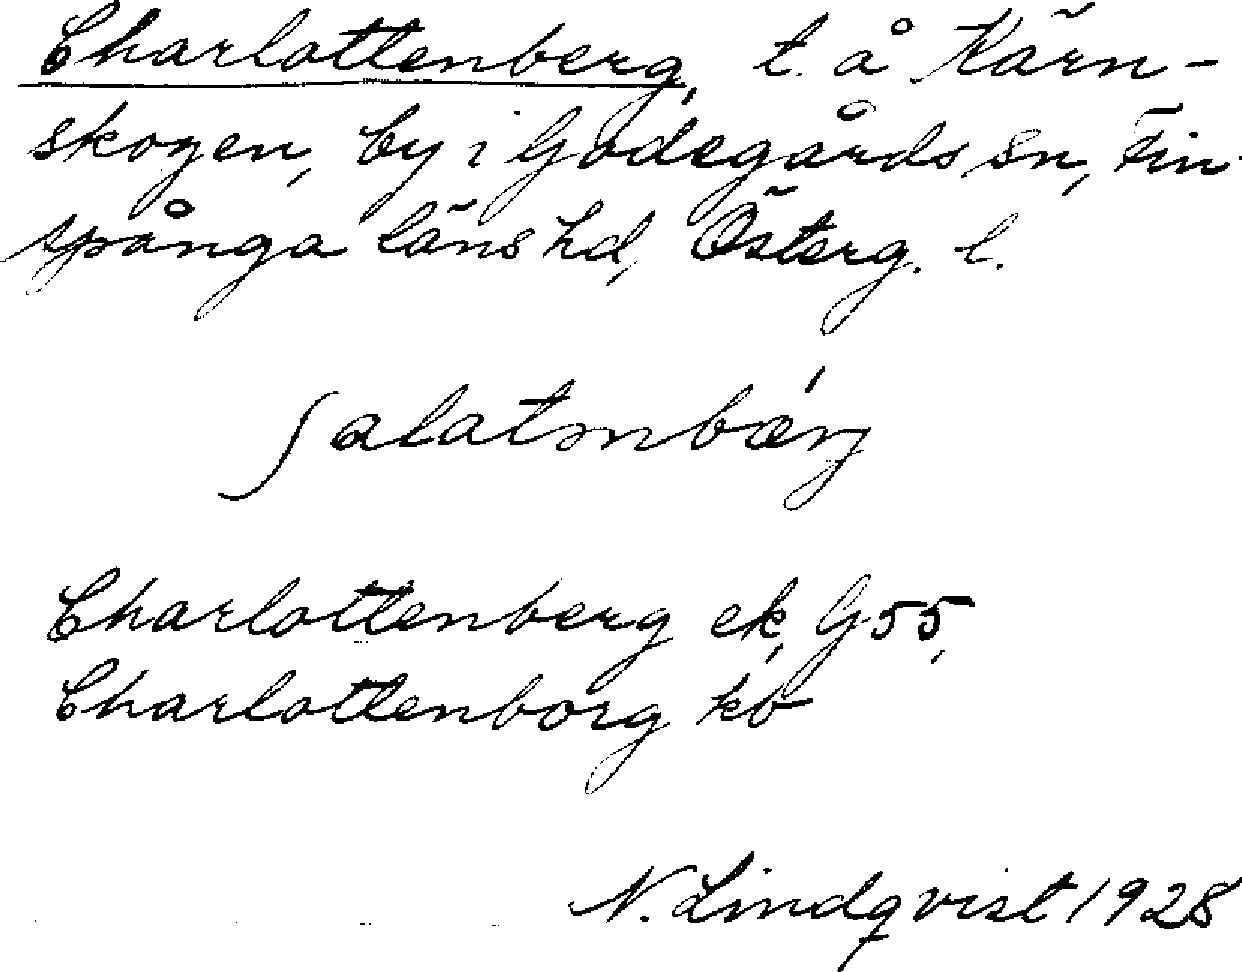 Charlottenberg, t. å Kärn-
skogen, by i Godegårds sn, Fin-
spånga läns hd, Österg. l.
ʃalatmbærj
Charlottenberg ek, G55,
Charlottenborg kb
N. Lindqvist 1928